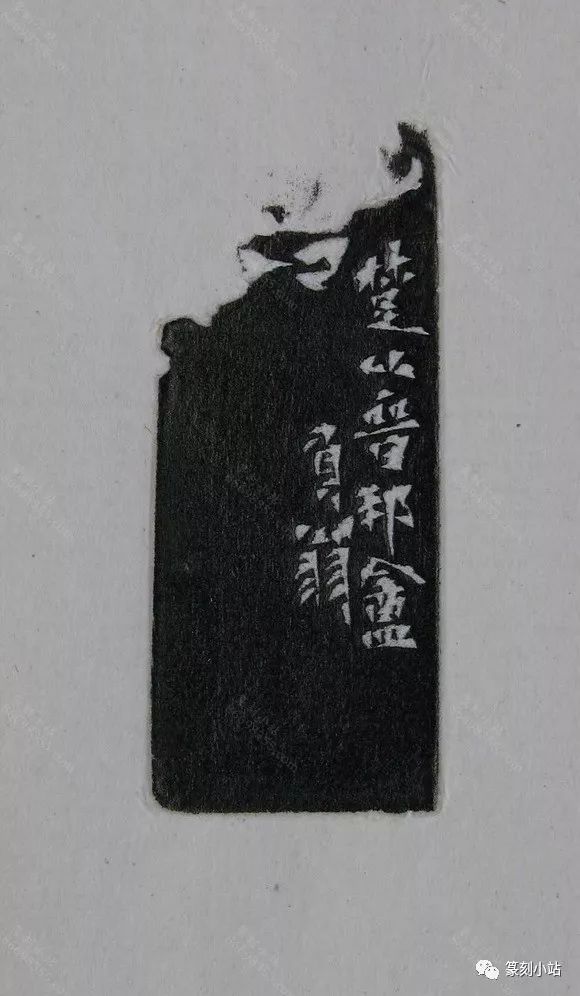 楚以晉邦盦
負翁
篆刻小站